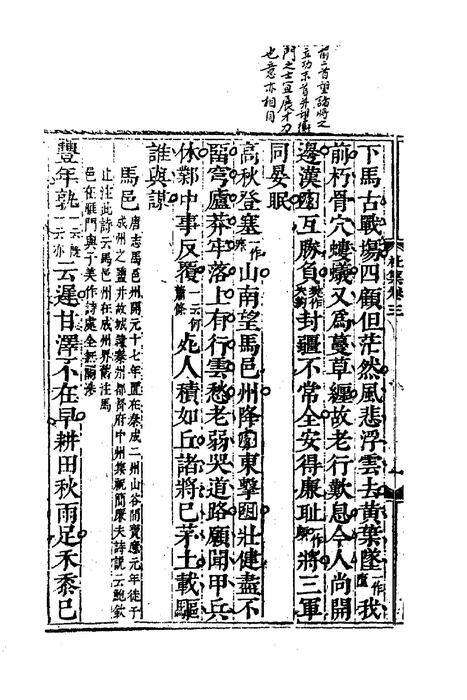 前二首望諸將之
立功末首并望衡
門之士宜展才力
也意亦相同
杜集卷三
下馬古戰場四顧但茫然風悲浮雲去黃葉墜一作我
前朽骨穴螻蟻又爲蔓草纏故老行歎息今人尚開
邊漢互勝負封疆不常全安得廉恥一作頗將三軍
同晏眠
高秋登塞一作寒山南望馬邑州降東擊壯健盡不
留穹廬莽牢落上有行雲愁老弱哭道路願聞甲兵
休鄴中事反覆一云何蕭條死人積如丘諸將已茅土載驅
誰與謀
馬邑 唐志馬邑州開元十七年置在秦成二州山谷間寶應元年徙于
成州之鹽井故城隸秦州都督府中州集親簡夫詩說云鮑欽
止注此詩云馬邑州在成州界舊注馬
邑在雁門與子美作詩處全無關涉
豐年孰一云既一云亦云遲甘澤不在早耕田秋雨足禾黍已